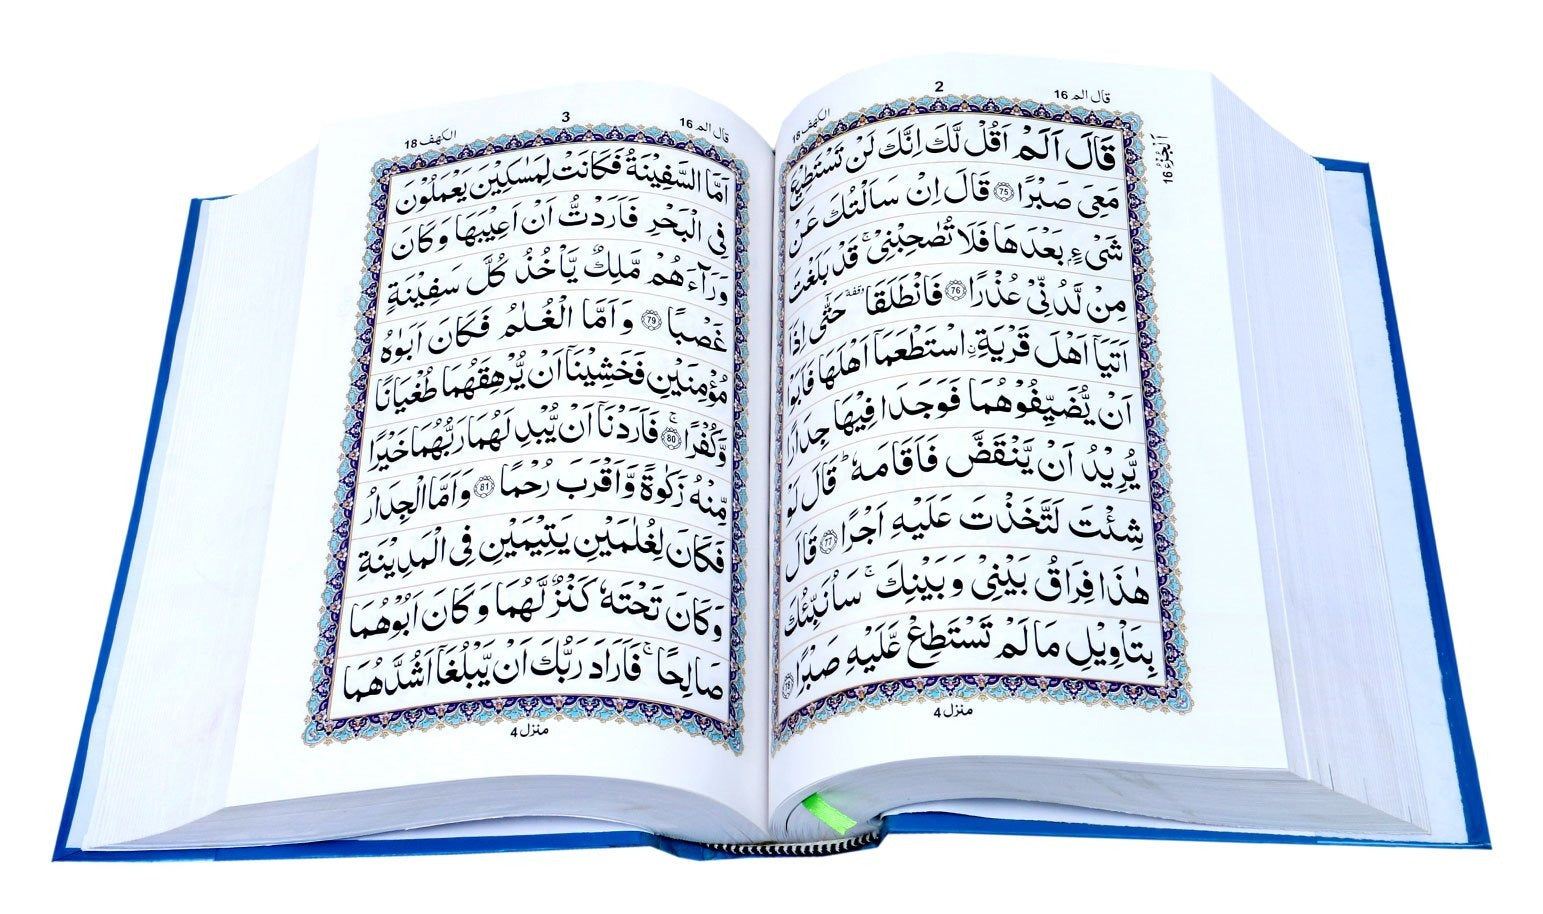 2
قال الم 16
الكهف 18
الجزء 16
قَالَ اَلَمْ اَقُلْ لَّكَ اِنَّكَ لَنْ تَسْتَطِيْعَ
مَعِیَ صَبْرًا ۝75 قَالَ اِنْ سَاَلْتُكَ عَنْ
شَیْءٍۭ بَعْدَهَا فَلَا تُصٰحِبْنِیْ ۚ قَدْ بَلَغْتَ
مِنْ لَّدُنِّیْ عُذْرًا ۝76 فَانْطَلَقَا ٝ وقفة حَتّٰۤی اِذَاۤ
اَتَيَاۤ اَهْلَ قَرْيَةِ ۣاسْتَطْعَمَاۤ اَهْلَهَا فَاَبَوْا
اَنْ يُّضَيِّفُوْهُمَا فَوَجَدَا فِيْهَا جِدَارًا
يُّرِيْدُ اَنْ يَّنْقَضَّ فَاَقَامَهٗ ؕ قَالَ لَوْ
شِئْتَ لَتَّخَذْتَ عَلَيْهِ اَجْرًا ۝77 قَالَ
هٰذَا فِرَاقُ بَيْنِیْ وَ بَيْنِكَ ۚ سَاُنَبِّئُكَ
بِتَاْوِيْلِ مَا لَمْ تَسْتَطِعْ عَّلَيْهِ صَبْرًا ۝78
منزل 4
3
قال الم 16
الكهف 18
اَمَّا السَّفِيْنَةُ فَكَانَتْ لِمَسٰكِيْنَ يَعْمَلُوْنَ
فِی الْبَحْرِ فَاَرَدْتُّ اَنْ اَعِيْبَهَا وَ كَانَ
وَرَآءَهُمْ مَّلِكٌ يَّاْخُذُ كُلَّ سَفِيْنَةٍ
غَصْبًا ۝79 وَ اَمَّا الْغُلٰمُ فَكَانَ اَبَوٰهُ
مُؤْمِنَيْنِ فَخَشِيْنَاۤ اَنْ يُّرْهِقَهُمَا طُغْيَانًا
وَّ كُفْرًا ۚ ۝80 فَاَرَدْنَاۤ اَنْ يُّبْدِلَهُمَا رَبُّهُمَا خَيْرًا
مِّنْهُ زَكٰوةً وَّ اَقْرَبَ رُحْمًا ۝81 وَ اَمَّا الْجِدَارُ
فَكَانَ لِغُلٰمَيْنِ يَتِيْمَيْنِ فِی الْمَدِيْنَةِ
وَ كَانَ تَحْتَهٗ كَنْزٌ لَّهُمَا وَ كَانَ اَبُوْهُمَا
صَالِحًا ۚ فَاَرَادَ رَبُّكَ اَنْ يَّبْلُغَاۤ اَشُدَّهُمَا
منزل 4